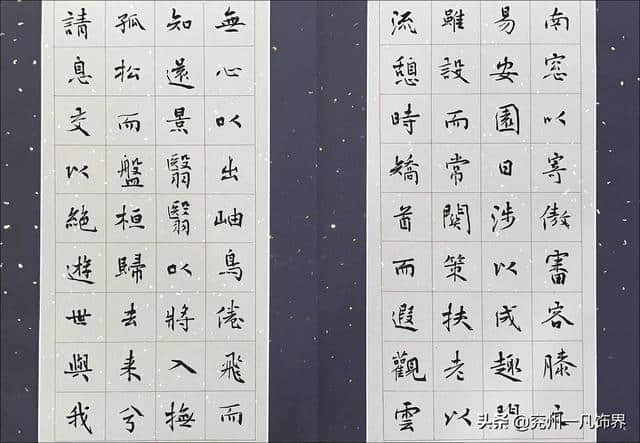 南窓以寄傲審容膝之
易安園日涉以成趣門
雖設而常関策扶老以
流憩時矯首而遐觀雲
無心以出岫鳥倦飛而
知還景翳翳以將入撫
孤松而盤桓歸去来兮
請息交以絶遊世與我
头条 @兖州一凡饰界